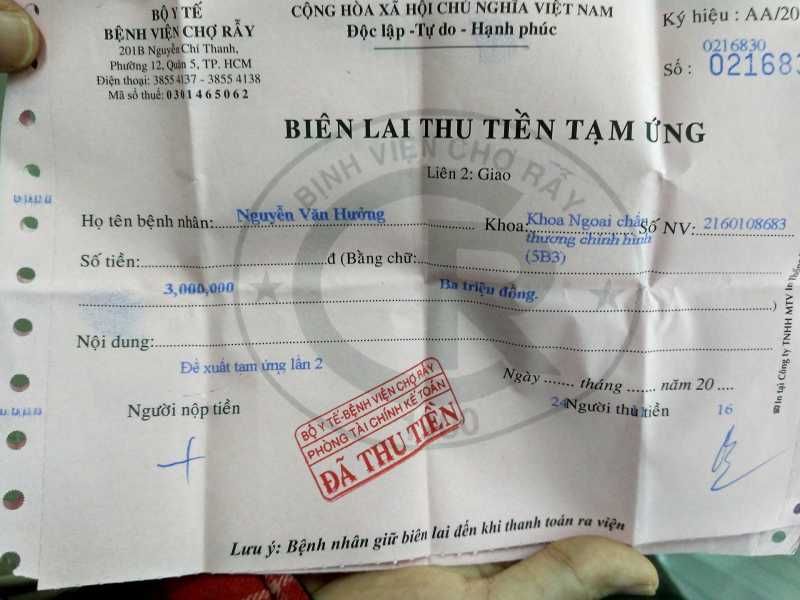 BỘ Y TẾ
BỆNH VIỆN CHỢ RẪY
201B Nguyễn Chí Thanh,
Phường 12, Quận 5, TP. HCM
Điện thoại: 3855 4137 - 3855 4138
Mã số thuế: 0301465062
CỘNG HÒA XÃ HỘI CHỦ NGHĨA VIỆT NAM
Độc lập -Tự do - Hạnh phúc
Ký hiệu : AA/20
0216830
Số : 021683
BIÊN LAI THU TIỀN TẠM ỨNG
Liên 2: Giao
BỊNH VIỆN CHỢ RẪY
Họ tên bệnh nhân: Nguyễn Văn Hưởng Khoa: Khoa Ngoại chấn Số NV: 2160108683
thương chỉnh hình
(5B3)
Số tiền: đ (Bằng chữ:
3,000,000 Ba triệu đồng. )
Nội dung:
Đề xuất tạm ứng lần 2
Ngày ....... tháng ...... năm 20 ....
24 16
Người nộp tiền Người thu tiền
BỘ Y TẾ-BỆNH VIỆN CHỢ RẪY
PHÒNG TÀI CHÍNH KẾ TOÁN
ĐÃ THU TIỀN
Lưu ý: Bệnh nhân giữ biên lai đến khi thanh toán ra viện
In tại Công ty TNHH MTV In